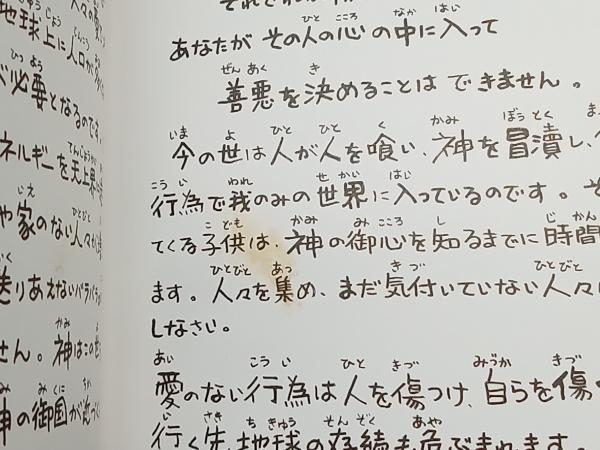 あなたが その人の心の中に入って
善悪を決めることは できません。
今の世は人が人を喰い、神を冒瀆し、
行為で我のみの世界に入っているのです。そ
てくる子供は、神の御心を知るまでに時間
ます。人々を集め、まだ気付いていない人々
しなさい。
愛のない行為は人を傷つけ、自らを傷
行く先、地球の存続も危ぶまれます。
地球上に人口が
必要となるのです
ネルギーを天上界
や家のない人々が
送りあえないバラバラ
せん。神はこの世
神の御国が近づく